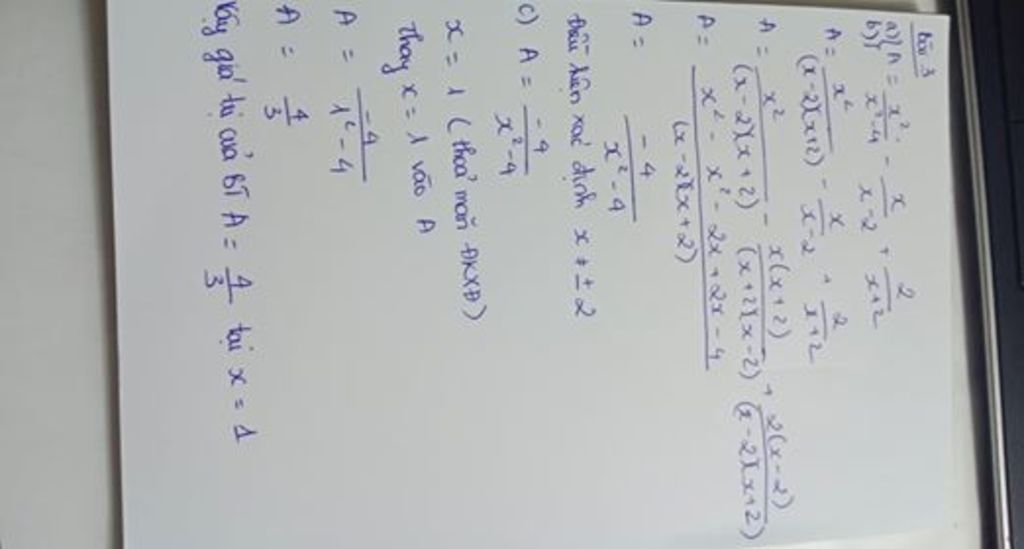 Bài 3
a) b) A = x²/(x²-4) - x/(x-2) + 2/(x+2)
A = x²/((x-2)(x+2)) - x/(x-2) + 2/(x+2)
A = x²/((x-2)(x+2)) - x(x+2)/((x+2)(x-2)) + 2(x-2)/((x-2)(x+2))
A = (x² - x² - 2x + 2x - 4)/((x-2)(x+2))
A = -4/(x²-4)
Điều kiện xác định x ≠ ± 2
c) A = -4/(x²-4)
x = 1 (thoả mãn ĐKXĐ)
Thay x = 1 vào A
A = -4/(1²-4)
A = 4/3
Vậy giá trị của BT A = 4/3 tại x = 1